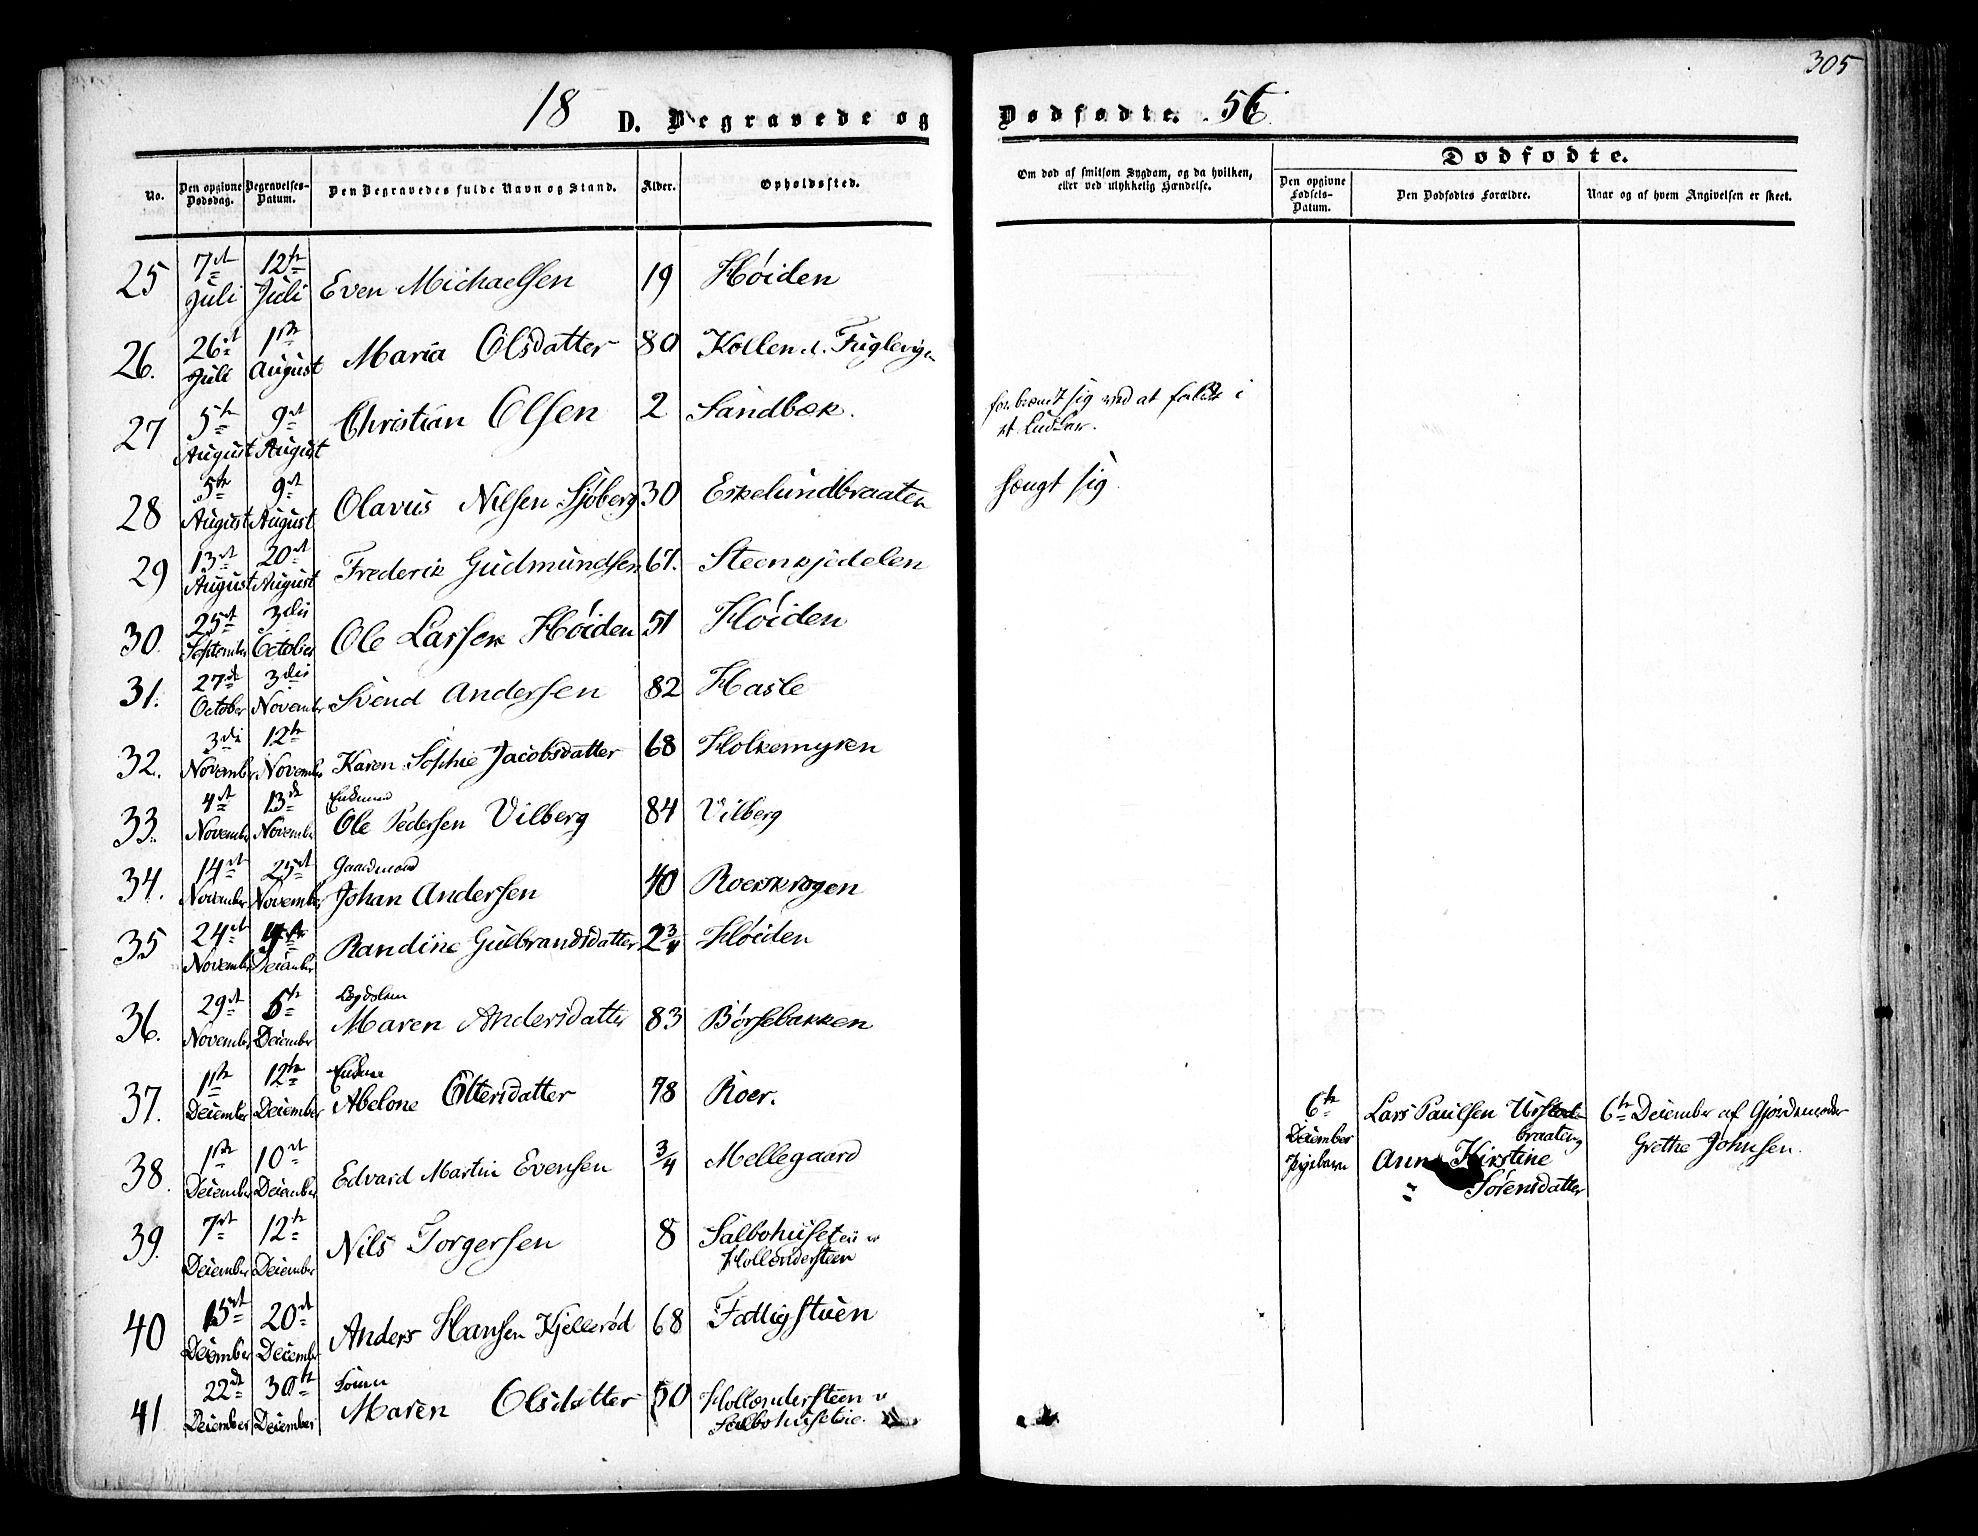 305
18 D. Begravede og Dødfødte. 56
Dødfødte.
No. Den opgivne Dødsdag. Begravelses-Datum. Den Begravedes fulde Navn og Stand. Alder. Opholdssted. Om død af smitsom Sygdom, og da hvilken, eller ved ulykkelig Hændelse. Den opgivne Fødsels-Datum. Den Dødfødtes Forældre. Naar og af hvem Angivelsen er skeet.
25 7de Juli 12te Juli Even Michaelsen 19 Høiden
26. 26de Juli 1ste August Maria Olsdatter 80 Kollen Fuglevigen
27 5te August 9de August Christian Olsen 2 Sandbæk. forbrændt sig ved at falde i et Ludkar.
28 5te August 9de August Olavus Nilsen Sjøberg 30 Eskelundbraaten hængt sig
29 13de August 20de August Frederik Gudmundsen 67. Steenkjædelen
30. 25de September 3die October Ole Larsen Høiden 51 Høiden
31. 27de October 3die November Svend Andersen 82 Hasle
32. 3die November 12te November Karen Sophie Jacobsdatter 68 Holkemyren
33. 4de November 13de November Enkemand
Ole Pedersen Vilberg 84 Vilberg
34. 14de November 25de November Gaardmand
Johan Andersen 40 Roerskrogen
35 24de November December Randine Gulbrandsdatter 2 3/4 Høiden
36. 29de November 5te December Lægdslem
Maren Andersdatter 83 Børsebakken
37. 11te December 12te December Enkene
Abelone Ottersdatter 78 Roer.
6te December Pigebarn Lars Paulsen braaten
Anne Kirstine Sørensdatter
6te December af Gjordemoder
Grethe Johnsen.
38. 1ste December 10de December Edvard Martin Evensen 3/4 Mellegaard
39. 7de December 12te December Nils Torgersen 8 Salbohuset
Hollændersteen
40 15de December 20de December Anders Hansen Kjellerød 68 Fattigstuen
41 22de December 30te December
Maren Olsdatter 50 Hollændersteen v